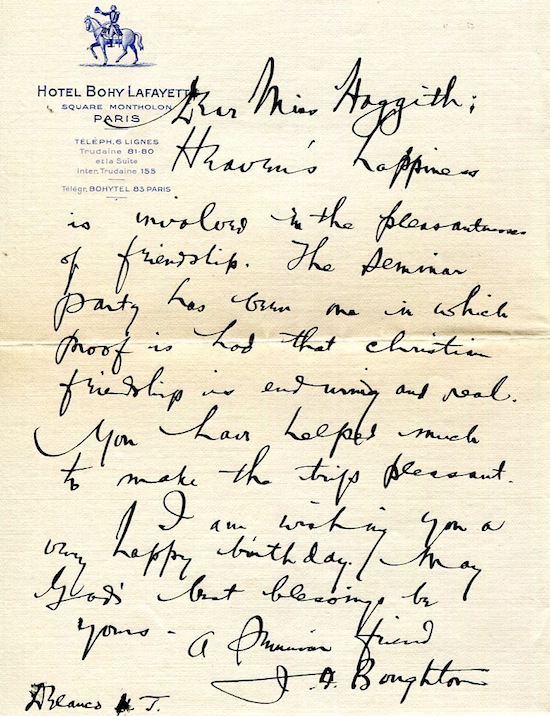 HOTEL BOHY LAFAYETTE
SQUARE MONTHOLON
PARIS
TÉLÉPH. 6 LIGNES
Trudaine 81-80
et la Suite
Inter. Trudaine 155
Télégr. BOHYTEL 83 PARIS
Dear Miss Hoggith;
Heaven's happiness
is involved in the pleasantness
of friendship. The seminar
party has been one in which
proof is had that christian
friendship is enduring and real.
You have helped much
to make the trip pleasant.
I am wishing you a
very happy birthday. May
God's best blessings be
yours - A Seminar friend
J. A. Boughton
Delanco N. J.